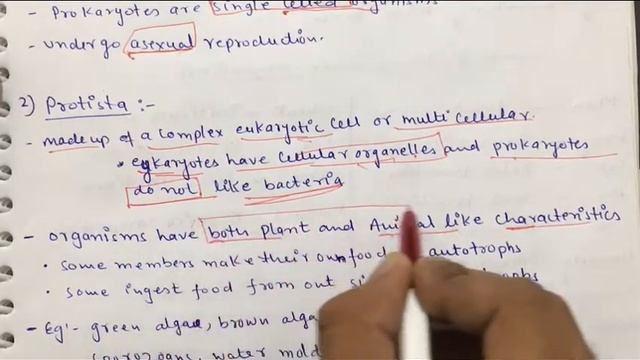 - Prokaryotes are single celled organisms
- undergo asexual reproduction.
2) Protista :-
- made up of a complex eukaryotic cell or multicellular.
* eukaryotes have cellular organelles and prokaryotes
do not like bacteria
- organisms have both plant and Animal like characteristics
• some members make their own food autotrophs
• some ingest food from out
- Eg:- green algae, brown alga
water mold